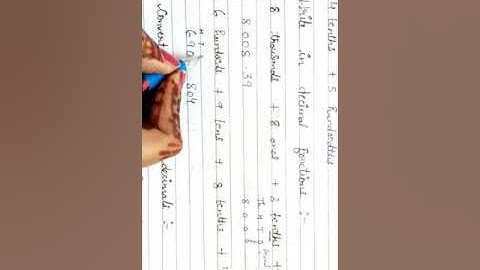 tenths + 5 hundredths
Write in decimal fractions :-
8 thousands + 8 ones + 3 tenths +
Th H T O
8 0 0 8
8,008.39
6 hundreds + 9 tens + 8 tenths +
H T
690 804
Convert decimals :-